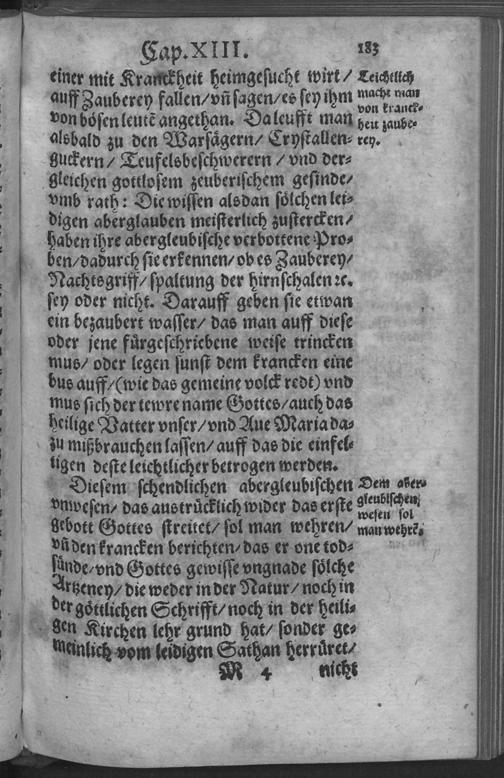 Cap. XIII. 183
einer mit Kranckheit heimgesucht wirt/
auff Zauberey fallen/vn̄ sagen/es sey ihm
von bösen leutē angethan. Da leufft man
alsbald zu den Warsägern/ Crystallen-
guckern/ Teufelsbeschwerern/ vnd der-
gleichen gottlosem zeuberischem gesinde/
vmb rath: Die wissen alsdan sölchen lei-
digen aberglauben meisterlich zustercken/
haben ihre abergleubische verbottene Pro-
ben/dadurch sie erkennen/ob es Zauberey/
Nachtsgriff/spaltung der hirnschalen ꝛc.
sey oder nicht. Darauff geben sie etwan
ein bezaubert wasser/ das man auff diese
oder jene fürgeschriebene weise trincken
mus/ oder legen sunst dem krancken eine
bus auff/(wie das gemeine volck redt) vnd
mus sich der tewre name Gottes/auch das
heilige Vatter vnser/vnd Aue Maria da-
zu mißbrauchen lassen/auff das die einfel-
tigen deste leichtlicher betrogen werden.
Diesem schendlichen abergleubischen
vnwesen/das austrücklich wider das erste
gebott Gottes streitet/sol man wehren/
vn̄ den krancken berichten/das er one tod-
sünde/vnd Gottes gewisse vngnade sölche
Artzeney/die weder in der Natur/noch in
der göttlichen Schrifft/noch in der heili-
gen Kirchen lehr grund hat/sonder ge-
meinlich vom leidigen Sathan herrüret/
M 4 nicht
Leichtlich
macht man
von kranck-
heit zaube-
rey.
Dem aber-
gleubischen
wesen sol
man wehrē.